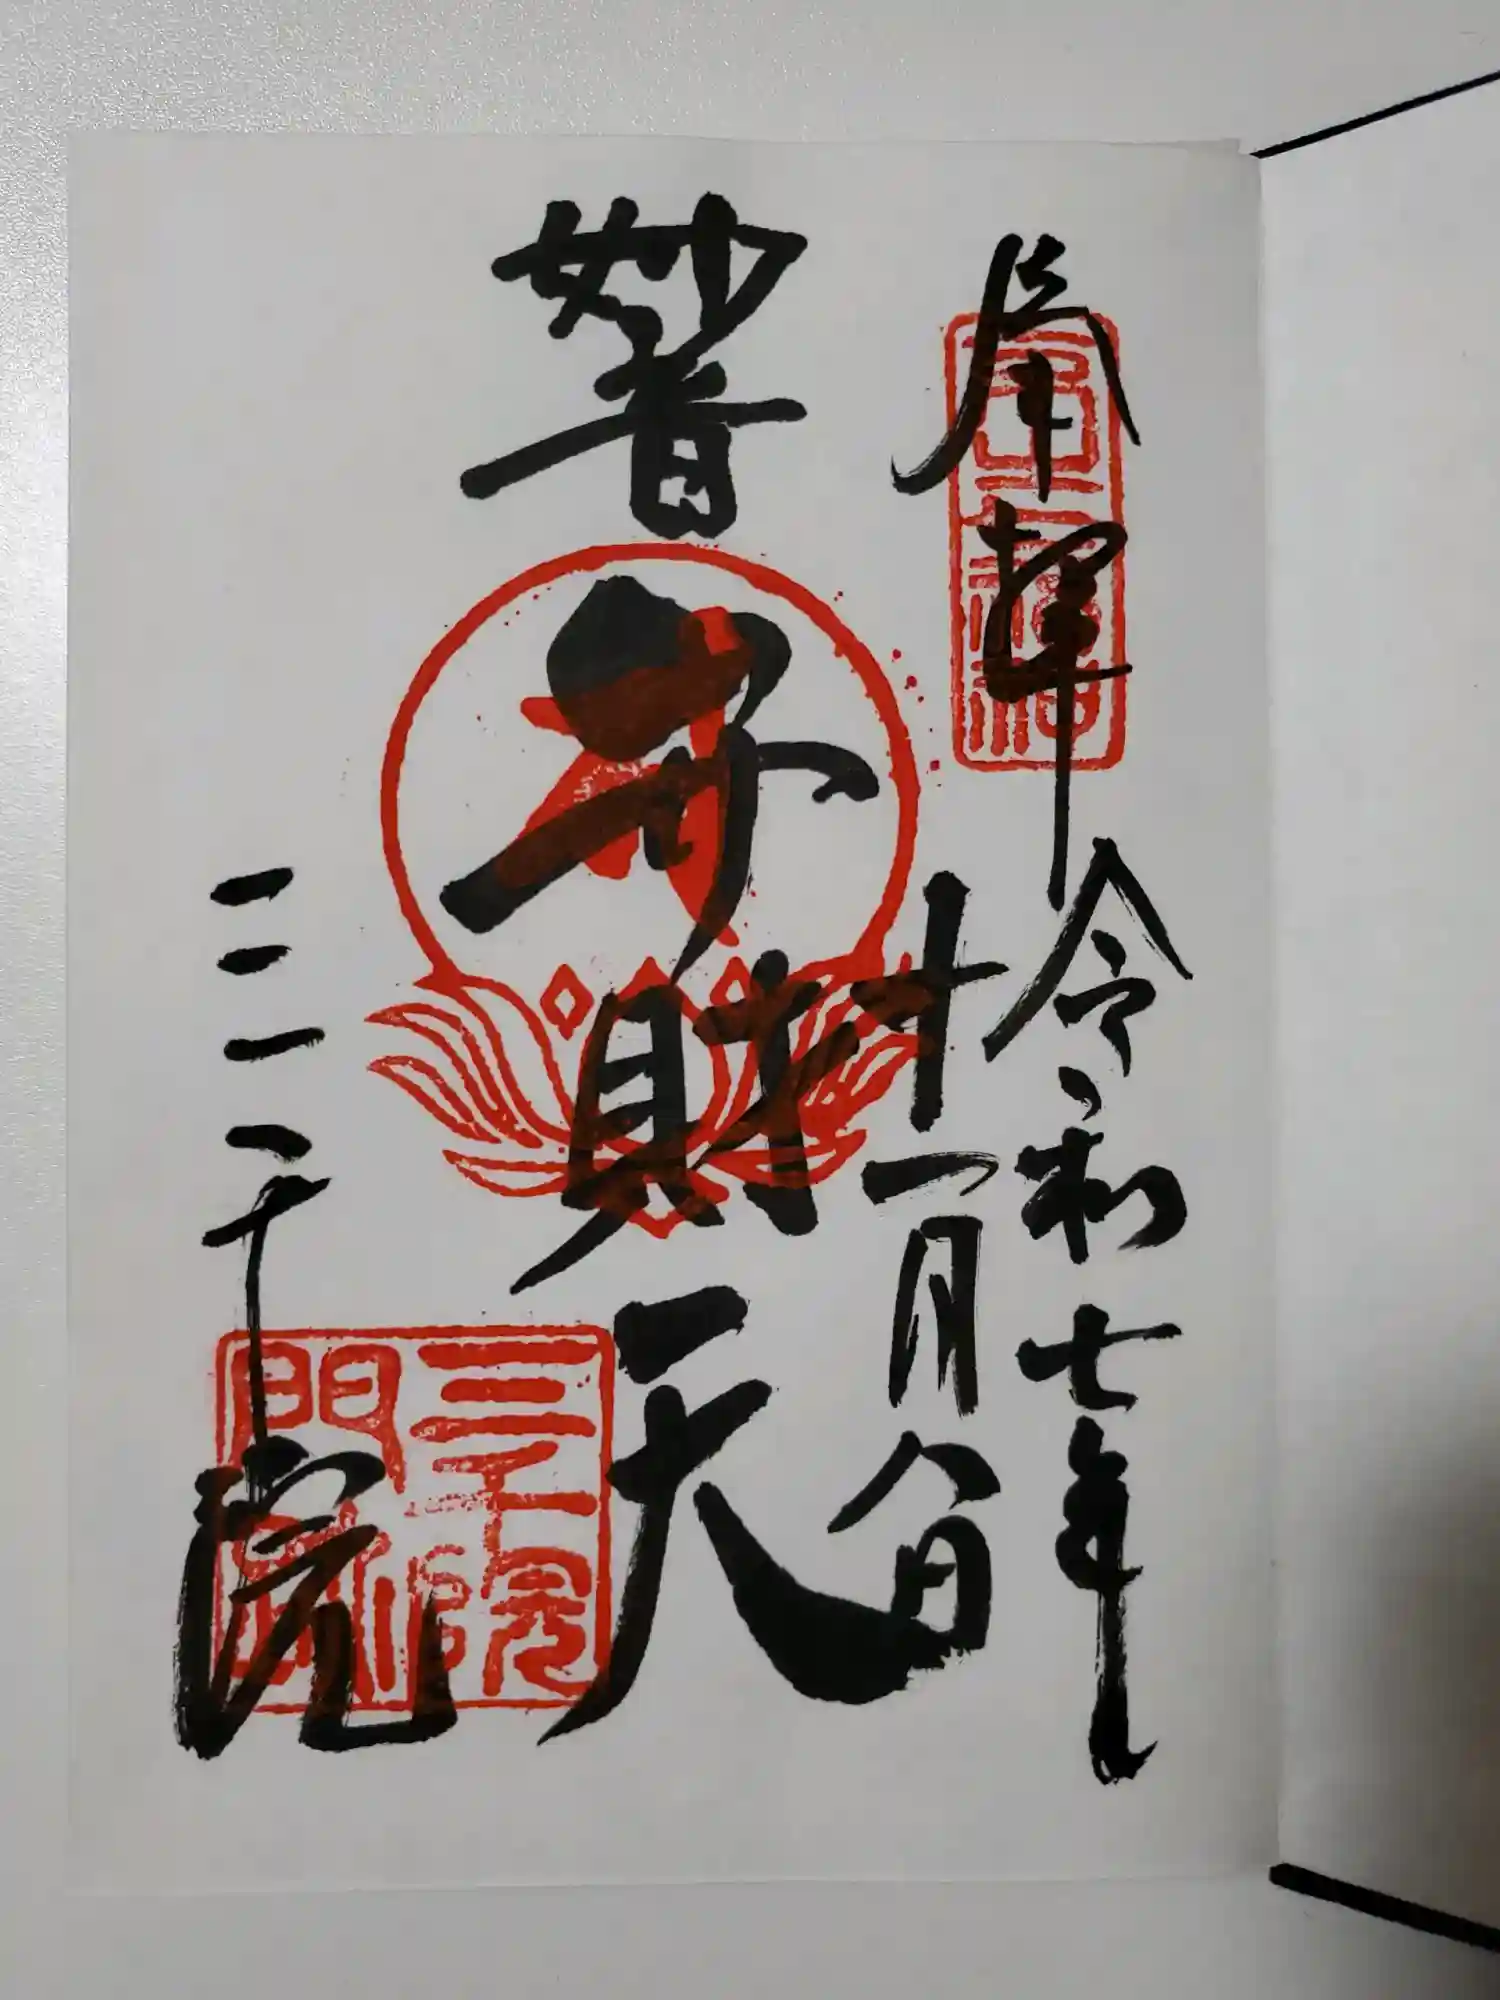 奉拝
令和七年
十一月八日
妙音
弁財天
三千院
三千院
門跡